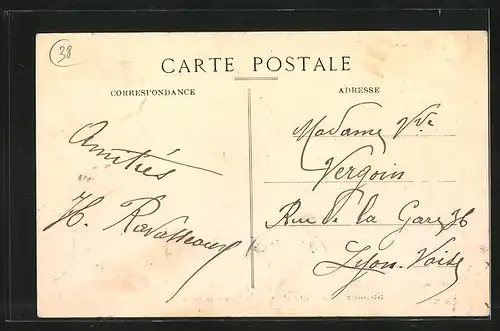 38
CARTE POSTALE
CORRESPONDANCE
ADRESSE
Amitiés
H. Ravasseaux
Madame Vve
Vergoin
Rue de la Gare 36
Lyon-Vaise